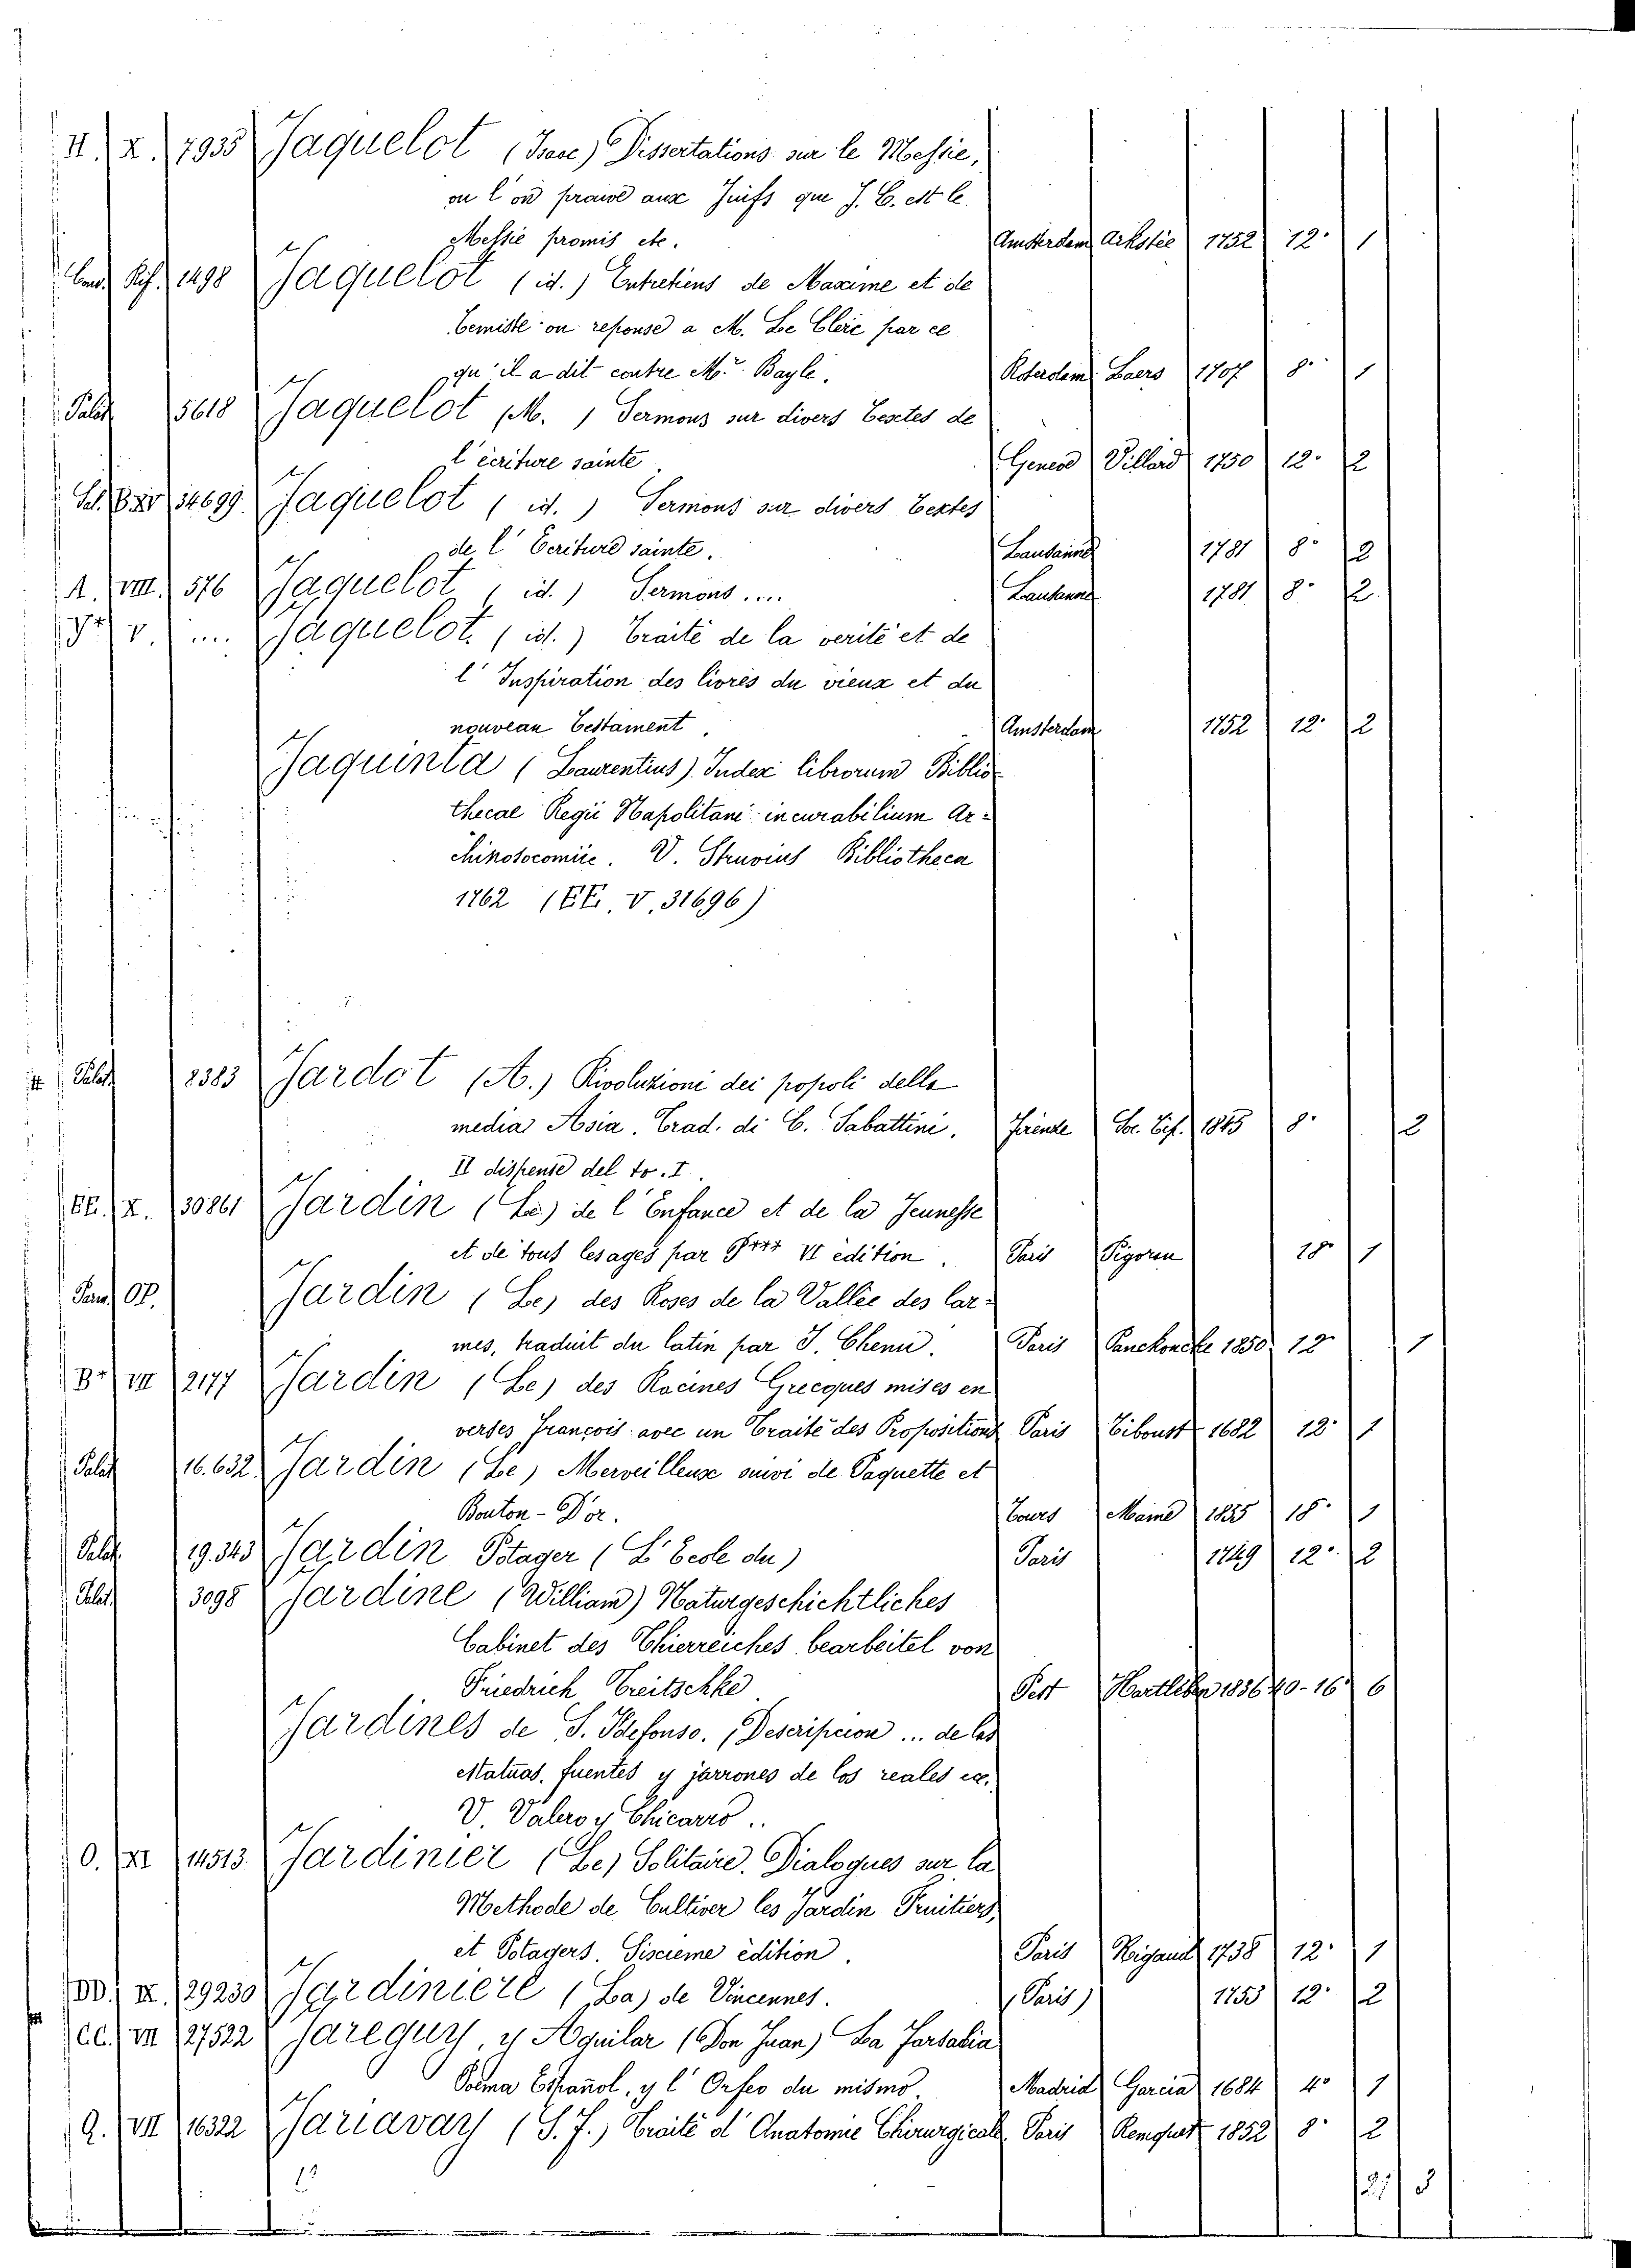 H. X. 7935 Jaquelot (Isac) Dissertations sur le Messie,
ou l'on prouve aux Juifs que J. C. est le
Messie promis etc. Amsterdam Arkstée 1752 12° 1
Rif. 1498 Jaquelot (id.) Entretiens de Maxime et de
Temiste ou reponse a M. Le Clerc par ce
qu'il a dit contre Mr. Bayle. Roterdam Laers 1707 8° 1
Palat. 5618 Jaquelot (M.) Sermons sur divers Textes de
l'écriture sainte. Geneve Villard 1750 12° 2
34699 Jaquelot (id.) Sermons sur divers Textes
de l'Ecriture sainte. Lausanne 1781 8° 2
A. VIII. 576 Jaquelot (id.) Sermons .... Lausanne 1781 8° 2.
V. .... Jaquelot. (id.) Traité de la verité et de
l'Inspiration des livres du vieux et du
nouveau Testament. Amsterdam 1752 12° 2
Jaquinta (Laurentius) Index librorum Biblio-
thecae Regii Napolitani incurabilium Ar-
chinosocomiic. V. Struvius Bibliotheca
1762 (EE. V. 31696)
Palat. 8383 Jardot (A.) Rivoluzioni dei popoli della
media Asia. Trad. di C. Sabattini. Firenze Soc. Tip. 1845 8° 2
II dispense del to. I.
EE. X. 30861 Jardin (Le) de l'Enfance et de la Jeunesse
et de tous lesages par P*** VI edition. Paris Pigoreu 18° 1
OP. Jardin (Le) des Roses de la Vallée des lar-
mes, traduit du latin par J. Chenu. Paris Panckoucke 1850 12° 1
Br. VIII 2177 Jardin (Le) des Racines Grecques mises en
verses François avec un Traité des Propositions Paris Tiboust 1682 12° 1
Palat. 16.632. Jardin (Le) Merveilleux suivi de Paquette et
Bouton-D'or. Tours Mame 1855 18° 1
Palat. 19.343 Jardin Potager (L'Ecole du) Paris 1749 12° 2
Palat. 3098 Jardine (William) Naturgeschichtliches
Cabinet des Thierreiches bearbeitel von
Friedrich Treitschke. Pest Hartleben 1836 40-16° 6
Jardines de S. Ildefonso. (Descripcion ... de las
estatuas, fuentes y jarrones de los reales ex.
V. Valero y Chicarro ..
O. XI 14513. Jardinier (Le) Solitaire. Dialogues sur la
Methode de Cultiver les Jardin Fruitiers,
et Potagers. Siscieme edition. Paris Rigaud 1738 12° 1
DD. II. 29230 Jardiniere (La) de Vincennes. (Paris) 1753 12° 2
CC. VII 27522 Jaregui, y Aguilar (Don Juan) La Farsalia
Poema Español, y l'Orfeo du mismo. Madrid Garcia 1684 4° 1
Q. VII 16322 Jariavay (S. J.) Traité d'Anatomie Chirurgicale Paris 1852 8° 2
12 21 3